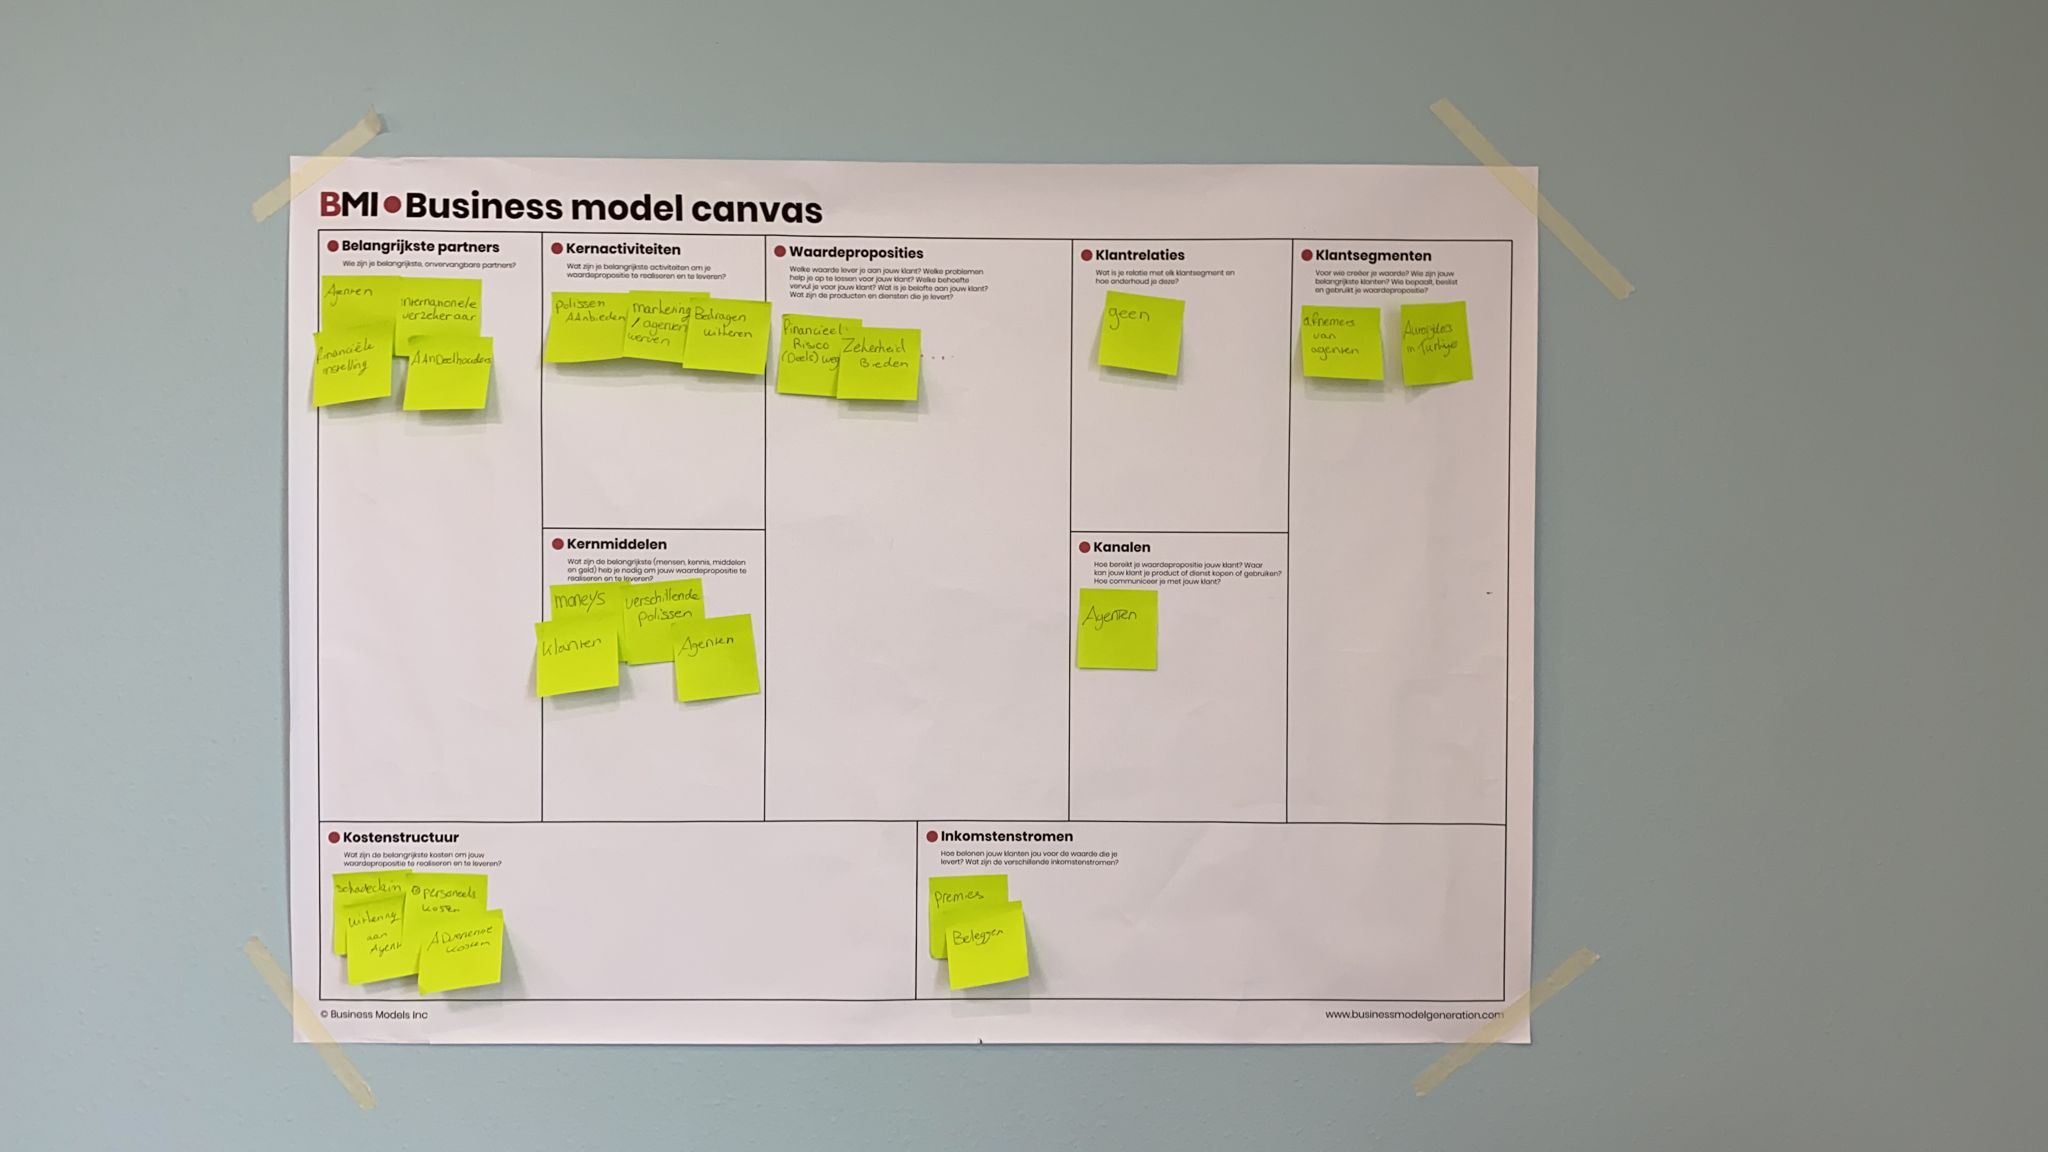 BMI Business model canvas
Belangrijkste partners
Wie zijn je belangrijkste, onvervangbare partners?
Agenten
internationele
verzekeraar
financiële
instelling
AANDeelhouders
Kernactiviteiten
Wat zijn je belangrijkste activiteiten om je
waardepropositie te realiseren en te leveren?
polissen
AAnbieden
marketing
/ agenten
werven
Bedragen
uitkeren
Kernmiddelen
Wat zijn de belangrijkste (mensen, kennis, middelen
en geld) heb je nodig om jouw waardepropositie te
realiseren en te leveren?
moneys
verschillende
polissen
klanten
Agenten
Waardeproposities
Welke waarde lever je aan jouw klant? Welke problemen
help je op te lossen voor jouw klant? Welke behoefte
vervul je voor jouw klant? Wat is je belofte aan jouw klant?
Wat zijn de producten en diensten die je levert?
Financieel
Risico
(Deels) weg
Zekerheid
Bieden
Klantrelaties
Wat is je relatie met elk klantsegment en
hoe onderhoud je deze?
geen
Kanalen
Hoe bereikt je waardepropositie jouw klant? Waar
kan jouw klant je product of dienst kopen of gebruiken?
Hoe communiceer je met jouw klant?
Agenten
Klantsegmenten
Voor wie creëer je waarde? Wie zijn jouw
belangrijkste klanten? Wie bepaalt, beslist
en gebruikt je waardepropositie?
afnemers
van
agenten
in Turkije
Kostenstructuur
Wat zijn de belangrijkste kosten om jouw
waardepropositie te realiseren en te leveren?
schadeclaim
personeels
kosten
uitkering
aan
Agent
kosten
Inkomstenstromen
Hoe belonen jouw klanten jou voor de waarde die je
levert? Wat zijn de verschillende inkomstenstromen?
premies
Beleggen
© Business Models Inc
www.businessmodelgeneration.com